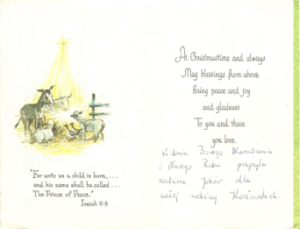 "For unto us a child is born, . . .
and his name shall be called . . .
The Prince of Peace."
Isaiah 9:6
At Christmastime and always
May blessings from above
Bring peace and joy
and gladness
To you and those
you love.
w dniu Bożego Narodzenia
i Nowego Roku przesyła
rodzina
dla
rodziny